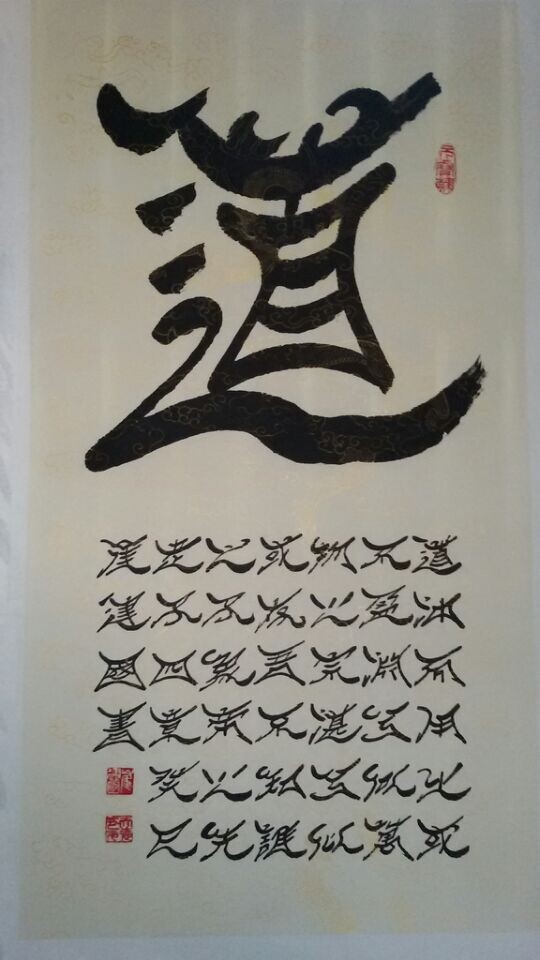 道
道沖而用之或
不盈淵兮似萬
物之宗湛兮似
或存吾不知誰
之子象帝之先
老子四章癸巳
建國書